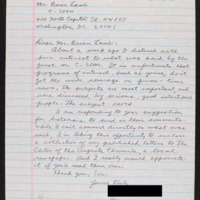 Mr. Brian Lamb
C-SPAN
400 North Capitol St., NW 650
Washington, DC 20001
Dear Mr. Brian Lamb:
About a week ago I listened with
keen interest to what was said by the
guest on C-SPAN. It is unfortunate that
programs of interest, such as yours, do not
get the wide coverage on prime-time
news. The subjects are most important and
were discussed by serious, good intentioned
people. The subject: NAFTA
I am responding to your suggestion
for listeners to send in their comments
while I cannot comment directly on what was
said, I am taking this opportunity to enclose
a collection of my published letters to the
Editor of the Augusta Chronicle, a local
newspaper. And I really would appreciate
it if you read them over.
Thank you, Sir.
Yours Truly,